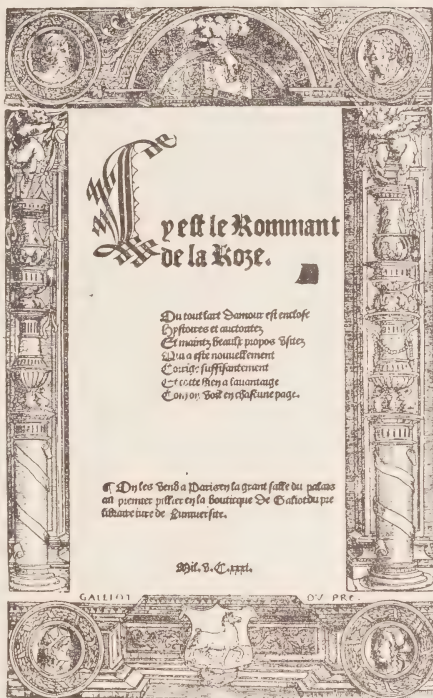 Cy est le Rommant
de la Roze.
Ou tout lart damour est enclose
Hystoires et auctoritez
Et maintz beaulx propos usitez
Qui a este nouvellement
Corrige suffisantement
Et cotte bien a lavantaige
Com on voit en chascune page.
¶ On les vend a Paris en la grant salle du palais
au premier pillier en la bouticque de Galiot du pre
libraire iure de Luniversite.
Mil. v. C. xxxi.
GALLIOT DV PRE.